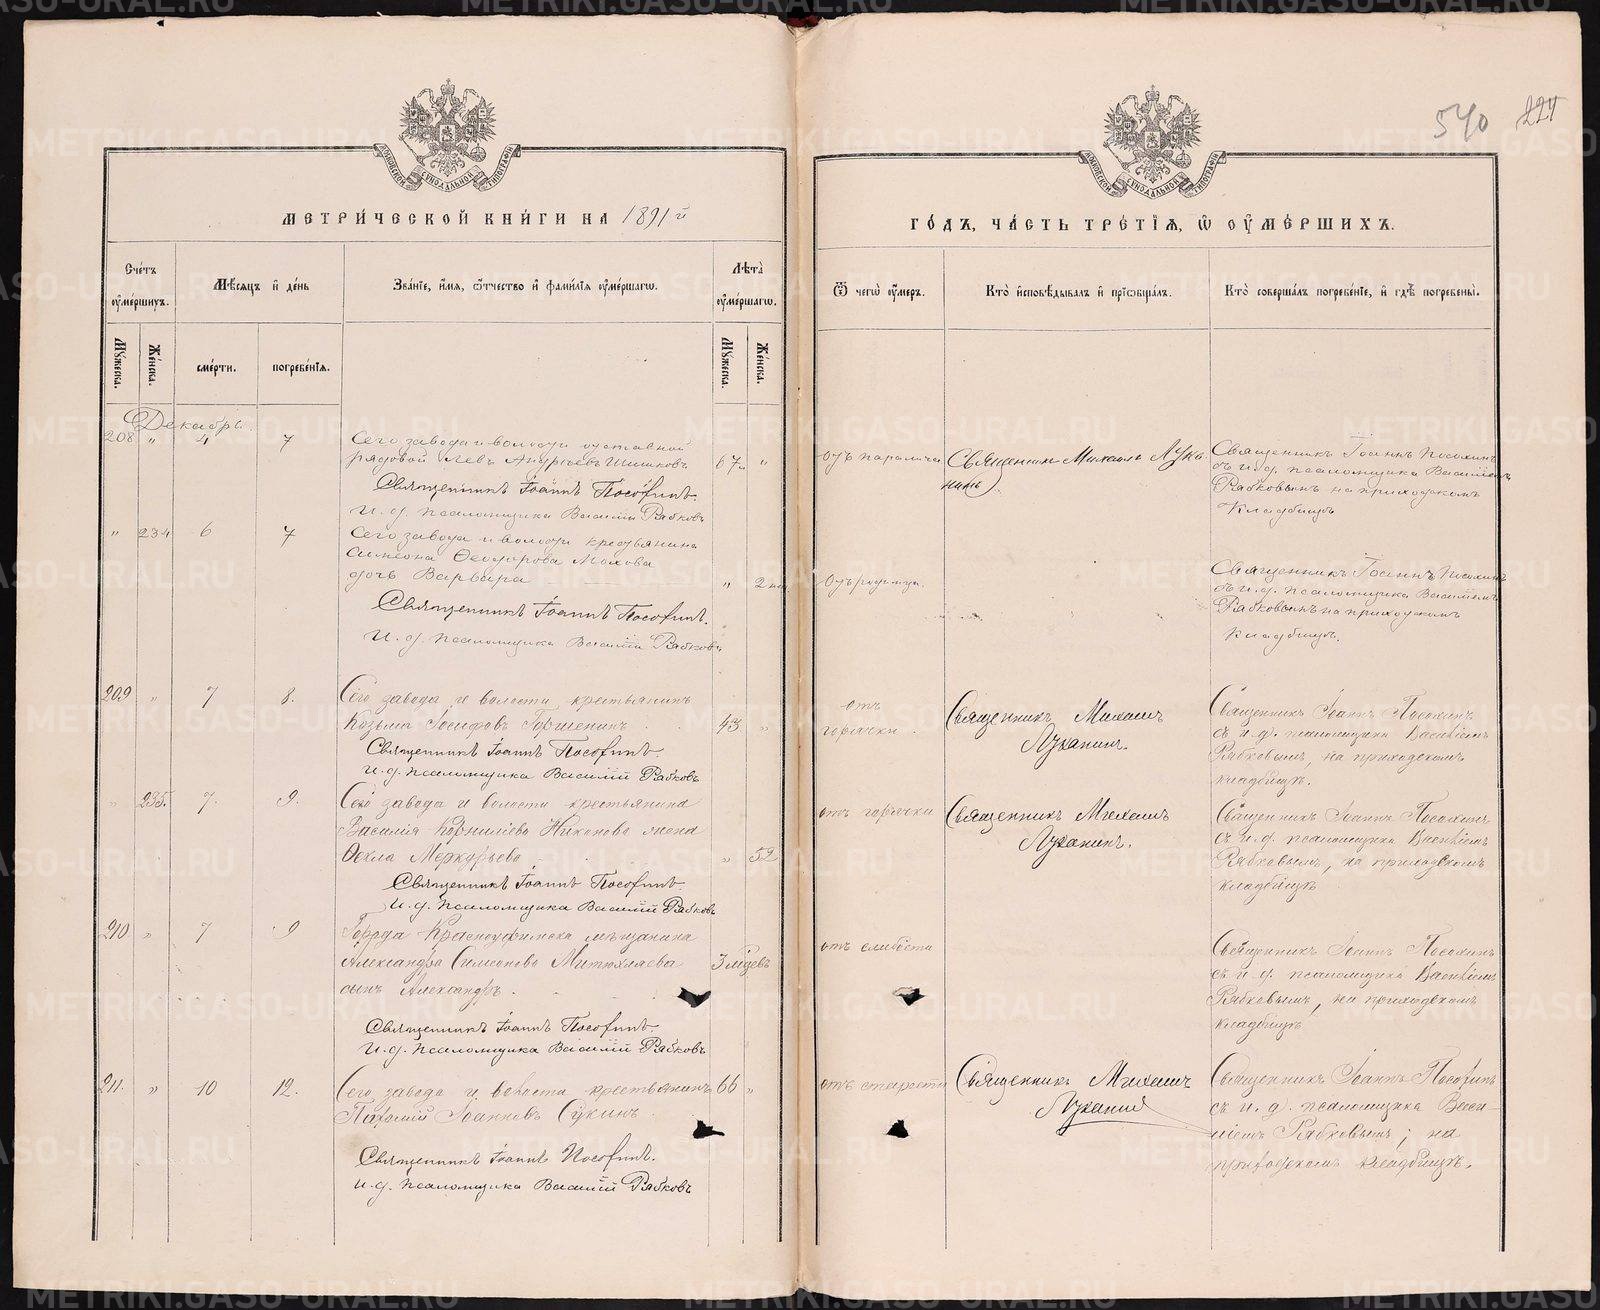 540 224
МОСКОВСКОЙ СѴНОДАЛЬНОЙ ТИПОГРАФІИ
МОСКОВСКОЙ СѴНОДАЛЬНОЙ ТИПОГРАФІИ
МЕТРИ́ЧЕСКОЙ КНИ́ГИ НА 1891й
ГО́ДЪ, ЧА́СТЬ ТРЕ́ТІѦ, Ѡ҆ ОУ҆МЕ́РШИХЪ.
Сче́тъ оу҆ме́ршихъ.
Мꙋжеска.
Же́нска.
Мѣ́сѧцъ и҆ де́нь
сме́рти.
погребе́нїѧ.
Зва́нїе, и҆́мѧ, ѻ҆́тчество и҆ фами́лїѧ оу҆ме́ршагѡ.
Лѣ̑та оу҆ме́ршагѡ.
Мꙋжеска.
Же́нска.
Ѿ чегѡ̀ оу҆́меръ.
Кто̀ и҆сповѣ́дывалъ и҆ прїѡбща́лъ.
Кто̀ соверша́лъ погребе́нїе, и҆ гдѣ̀ погребены̀.
Декабрь.
208 " 4 7 Сего завода и волости отставной
рядовой Левъ Андреевъ Шишковъ 67 "
Священникъ Іоаннъ Посохинъ.
И. д. псаломщика Василій Рябковъ
отъ паралича
Священникъ Михаилъ Луканинъ
Священникъ Іоаннъ Посохинъ
съ и. д. псаломщика Василіемъ
Рябковымъ на приходскомъ
кладбищѣ
" 234 6 7 Сего завода и волости крестьянина
Симеона Ѳеодорова
дочь Варвара " 2
Священникъ Іоаннъ Посохинъ.
И. д. псаломщика Василій Рябковъ
Отъ родимца.
Священникъ Іоаннъ Посохинъ
съ и. д. псаломщика Василіемъ
Рябковымъ на приходском
кладбищѣ.
209 " 7 8. Сего завода и волости крестьянинъ
Козьма Іосифовъ Горшенинъ 43. "
Священникъ Іоаннъ Посохинъ
И. д. псаломщика Василій Рябковъ
отъ
горячки.
Священникъ Михаилъ
Луканинъ.
Священникъ Іоаннъ Посохинъ
съ и. д. псаломщика Василіемъ
Рябковымъ, на приходскомъ
кладбищѣ.
" 235. 7. 9. Сего завода и волости крестьянина
Василія Корниліева Никонова жена
Ѳекла Меркурьева " 52
Священникъ Іоаннъ Посохинъ.
И. д. псаломщика Василій Рябковъ
отъ горячки
Священникъ Михаилъ
Луканинъ.
Священникъ Іоаннъ Посохинъ
съ и. д. псаломщика Василіемъ
Рябковымъ, на приходскомъ
кладбищѣ
210 " 7 9 Города Красноуфимска мѣщанина
Александра Симеонова Митюхляева
сынъ Александръ.
Священникъ Іоаннъ Посохинъ.
И. д. псаломщика Василій Рябковъ
отъ слабости
Священникъ Іоаннъ Посохинъ
съ и. д. псаломщика Василіемъ
Рябковымъ, на приходскомъ
кладбищѣ
211. " 10 12. Сего завода и волости крестьянинъ 66 "
Пахомій Іоанновъ Сукинъ
Священникъ Іоаннъ Посохинъ.
И. д. псаломщика Василій Рябковъ
отъ старости
Священникъ Михаилъ
Луканинъ
Священникъ Іоаннъ Посохинъ
съ и. д. псаломщика Васи-
ліемъ Рябковымъ; на
приходскомъ кладбищѣ.
METRIKI.GASO-URAL.RU